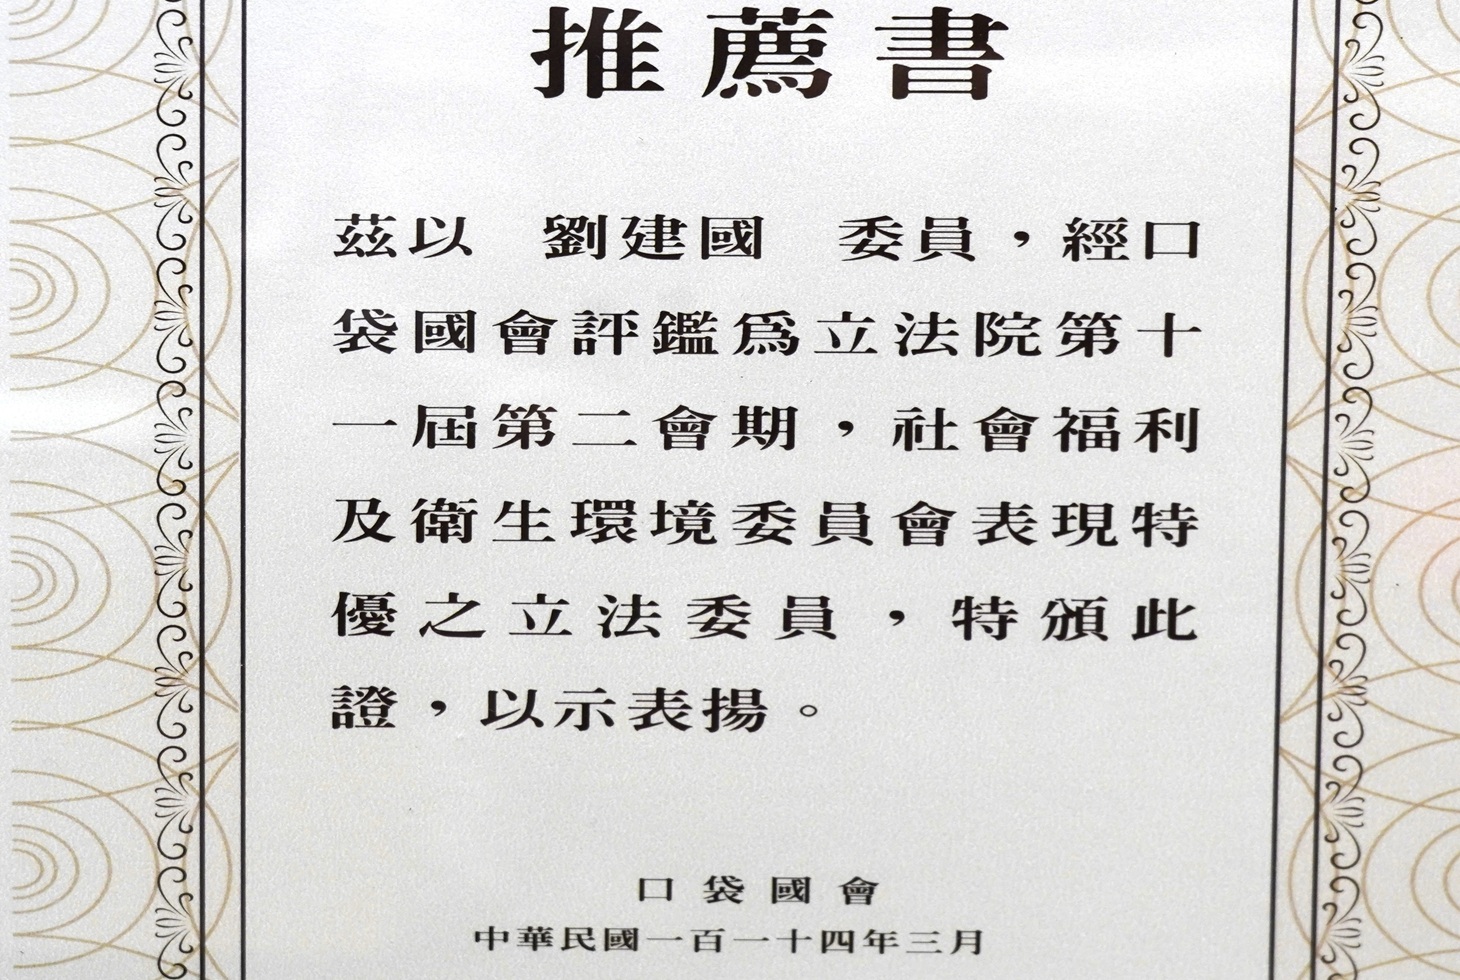 推薦書
茲以　劉建國　委員，經口
袋國會評鑑為立法院第十
一屆第二會期，社會福利
及衛生環境委員會表現特
優之立法委員，特頒此
證，以示表揚。
口袋國會
中華民國一百一十四年三月